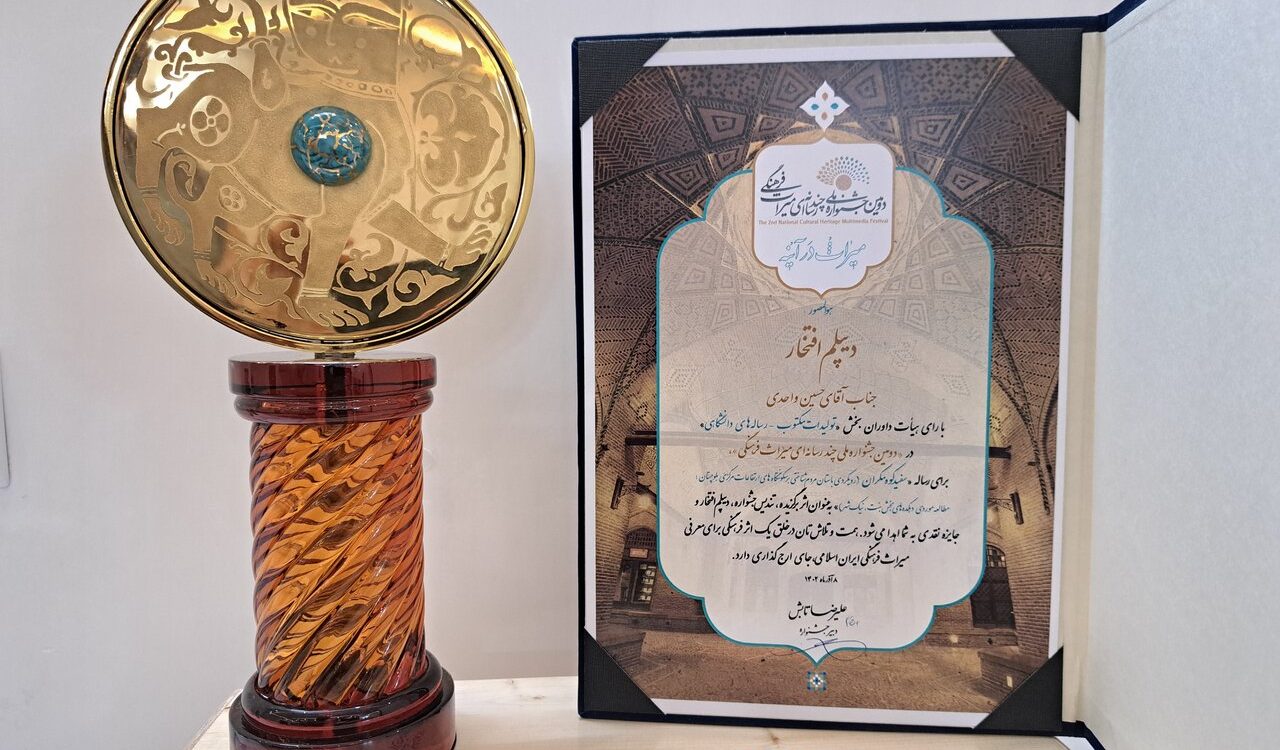 دومین جشنواره ملی چندرسانه‌ای میراث فرهنگی
The 2nd National Cultural Heritage Multimedia Festival
میراث در آینه
هوالمصور
دیپلم افتخار
جناب آقای حسین واحدی
با رای هیأت داوران بخش «تولیدات مکتوب - رساله های دانشگاهی»
در «دومین جشنواره ملی چند رسانه ای میراث فرهنگی»،
برای رساله «سفیدکوه مکران (رویکردی باستان مردم شناختی بر سکونتگاه های ارتفاعات مرکزی بلوچستان؛
مطالعه موردی دهکده های بخش بنت، نیک شهر)» به عنوان اثر برگزیده، تندیس جشنواره، دیپلم افتخار و
جایزه نقدی به شما اهدا می شود. همت و تلاش تان در خلق یک اثر فرهنگی برای معرفی
میراث فرهنگی ایران اسلامی، جای ارج گذاری دارد.
۸ آذرماه ۱۴۰۲
علیرضا تابش
دبیر جشنواره